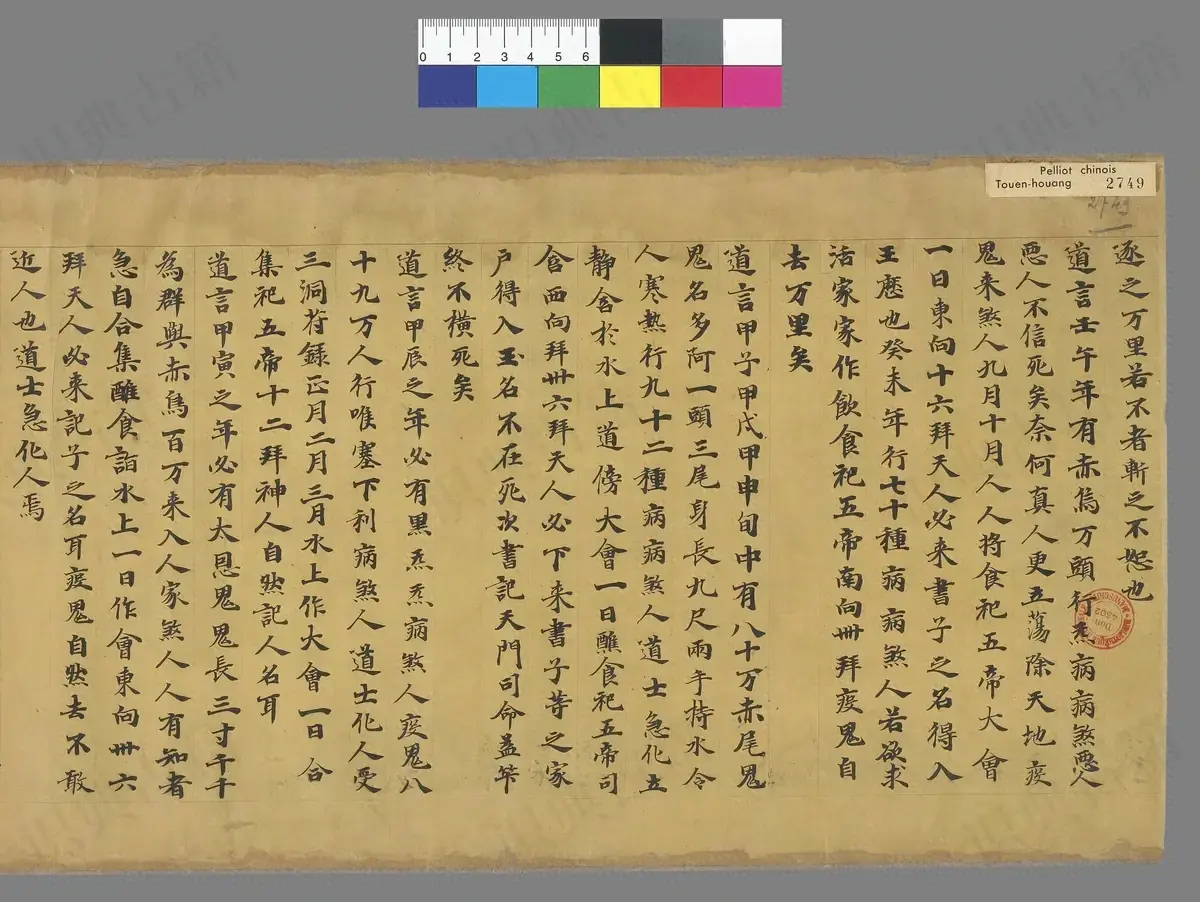 Pelliot chinois
Touen-houang 2749
2749
0 1 2 3 4 5 6
逐之万里若不者斬之不恕也
道言壬午年有赤烏万頭行炁病病煞惡人
惡人不信死矣奈何真人更立蕩除天地疫
鬼来煞人九月十月人人将食祀五帝大會
一日東向十六拜天人必来書子之名得入
王慿也癸未年行七十種病病煞人若欲求
活家家作飲食祀五帝南向卌拜疫鬼自
去万里矣
道言甲子甲戌甲申旬中有八十万赤尾鬼
鬼名多阿一頭三尾身長九尺兩手持水令
人寒熱行九十二種病病煞人道士急化立
静舍於水上道傍大會一日醮食祀五帝司
命西向拜卌六拜天人必下来書子等之家
户得入玉名不在死次書記天門司命益筭
終不橫死矣
道言甲辰之年必有黑炁炁病煞人疫鬼八
十九万人行喉塞下利病煞人道士化人受
三洞符録正月二月三月水上作大會一日合
集祀五帝十二拜神人自然記人名耳
道言甲寅之年必有太恩鬼鬼長三寸千千
為群與赤鳥百万来入人家煞人人有知者
急自合集醮食詣水上一日作會東向卌六
拜天人必来記子之名耳疫鬼自然去不敢
近人也道士急化人焉